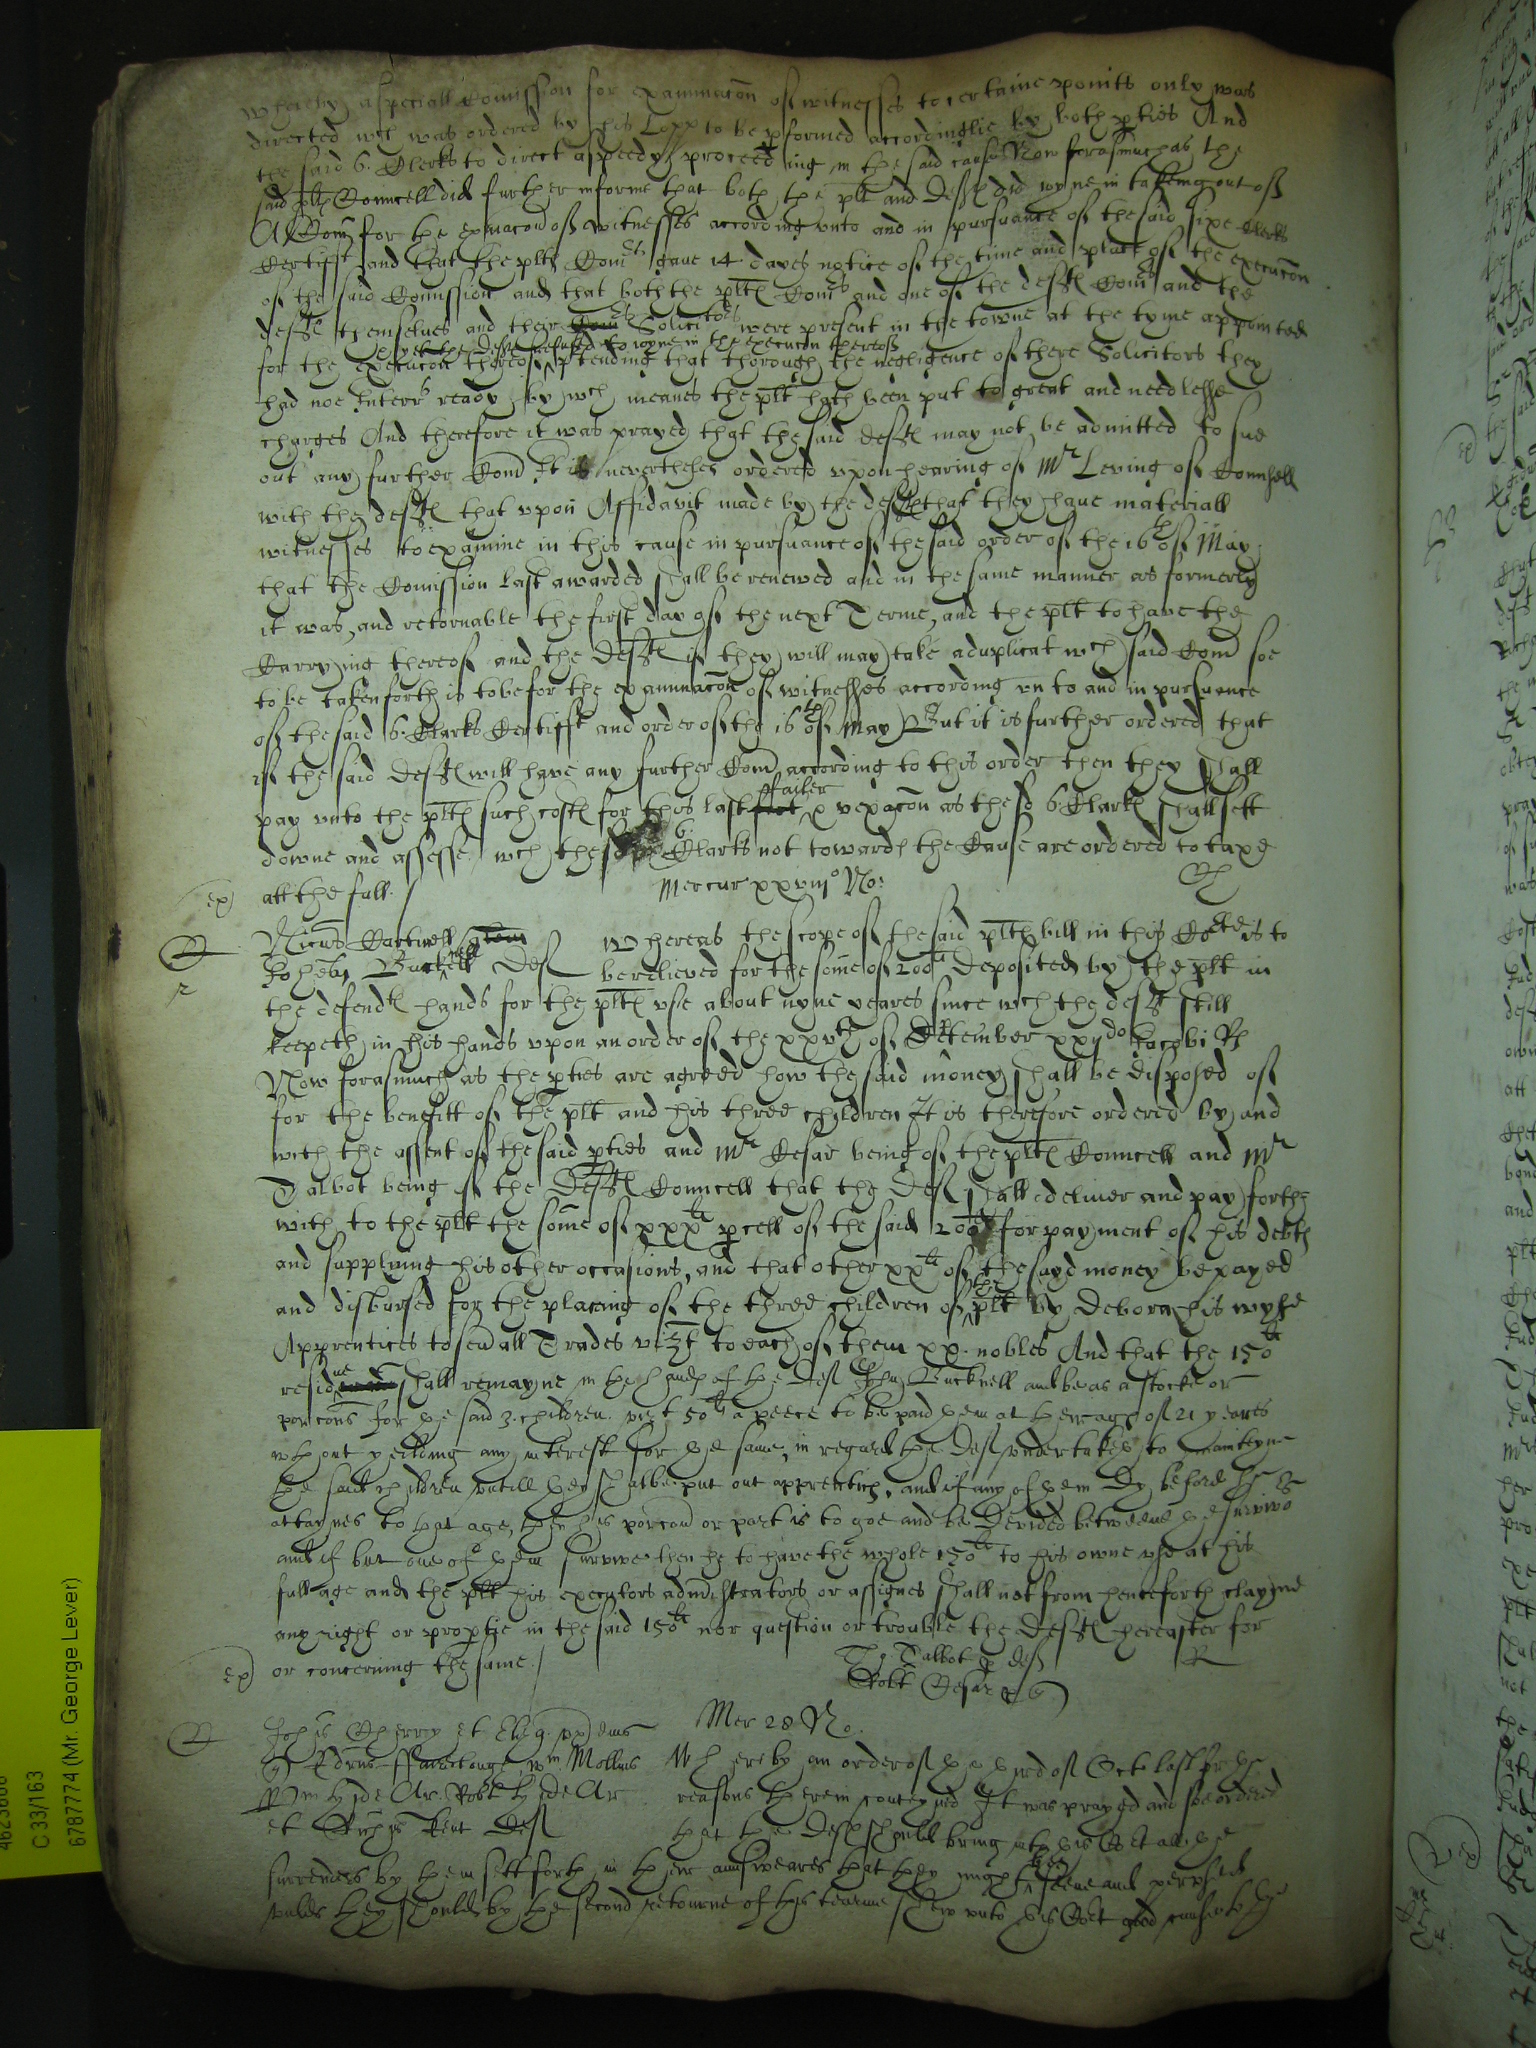 whereby a speciall Comission for examinacon of witnesses to certaine points only was
directed wch was ordered by his Lopp to be pformed accordinglie by both pties And
the said 6. Clerks to direct a speedy proceeding in the said cause Now forasmuch as the
said plts Councell did further informe that both the plt and defts did ioyne in takeing out of
A Com for the exnacon of witnesses according unto and in pursuance of the said sixe Clerks
Certifft and that the plts Comrs gave 14 dayes notice of the time and place of the execucon
of the said Comission and that both the plts Comrs and one of the defts Comrs and the
defts themselves and their Solicitors were present in the towne at the tyme appointed
yet the defts refused to ioyne in the execucon thereof
for the execucon thereof ptending that thorough the negligence of there Solicitors they
had noe Interrs ready by wch meanes the plt hath been put to great and needlesse
charges And therefore it was prayed that the said defts may not be admitted to sue
out any further Com It is nevertheles ordered upon hearing of Mr Leving of Counsell
with the defts that upon Affidavit made by the defts that they have materiall
witnesses to examine in this cause in pursuance of the said order of the 16th of May
that the Comission last awarded shall be renewed and in the same manner as formerly
it was, and retornable the first day of the next Terme, and the plt to have the
Carrying thereof and the defts if they will may take a duplicat wch said Com soe
to be taken forth is to be for the examinacon of witnesses according unto and in pursuance
of the said 6. Clarks Certifft and order of the 16th of May But it is further ordered that
if the said defts will have any further Com according to this order then they shall
pay unto the plts such costs for this last failer & vexacon as the sd 6 Clarks shall sett
downe and assesse wch the sd 6. Clarks not towards the Cause are ordered to taxe
att the full.
Mercur xxviijo No:
ex
Nicus Cartwell
Johes Bucknell def
Whereas the scope of the said plts bill in this Corte is to
be relieved for the some of 200li deposited by the plt in
the defendts hands for the plts use about nyne yeares since wch the deft still
keepeth in his hands upon an order of the xxvth of December xxijdo Jacobi R
Now forasmuch as the pties are agreed how the said money shall be disposed of
for the benefitt of the plt and his three children It is therefore ordered by and
with the assent of the said pties and Mr Cesar being of the plts Councell and Mr
Talbot being of the defts Councell that the def shall deliver and pay forth
with to the plt the some of xxxli pcell of the said 200li for payment of his debts
and supplying his other occasions, and that other xxli of the sayd money be payed
and disbursed for the placing of the three children of the plt by Debora his wyfe
Apprentices to sevall Trades vizt to each of them xx. nobles And that the 150li
residue shall remayne in the hands of the def John Bucknell and be as a stocke or
porcons for the said 3. children. vizt 50li a peece to be paid them at their age of 21 yeares
wthout yeilding any interest for the same, in regard the def undertakes to mainteyne
the said children untill they shalbe put out apprentices, and if any of them dy before he
attaynes to that age, then his porcon or part is to goe and be devided betweene the survivo
and if but one of them survive then he to have the whole 150li to his owne use at his
full age and the plt his executors administrators or assignes shall not from henceforth clayme
any right or proptie in the said 150li nor question or trouble the defts hereafter for
or concerning the same.
ex
Tho Talbot p def
Robt Cesar
Mer 28 No.
Johis Cherry et
Wm Mollins
Wm Hide Ar. Robt Hide Ar
et Kent def
Whereby an order of the xxiijrd of Octo last for the
reasons therein conteyned It was prayed and soe ordered
that the defts should bring into this Cort all the
surrenders by them sett forth in their answeares that they might bee seene and perused
unles they should by the second retourne of this tearme shew unto this Cort good cause to the
4625000
C 33/163
6787774 (Mr. George Lever)